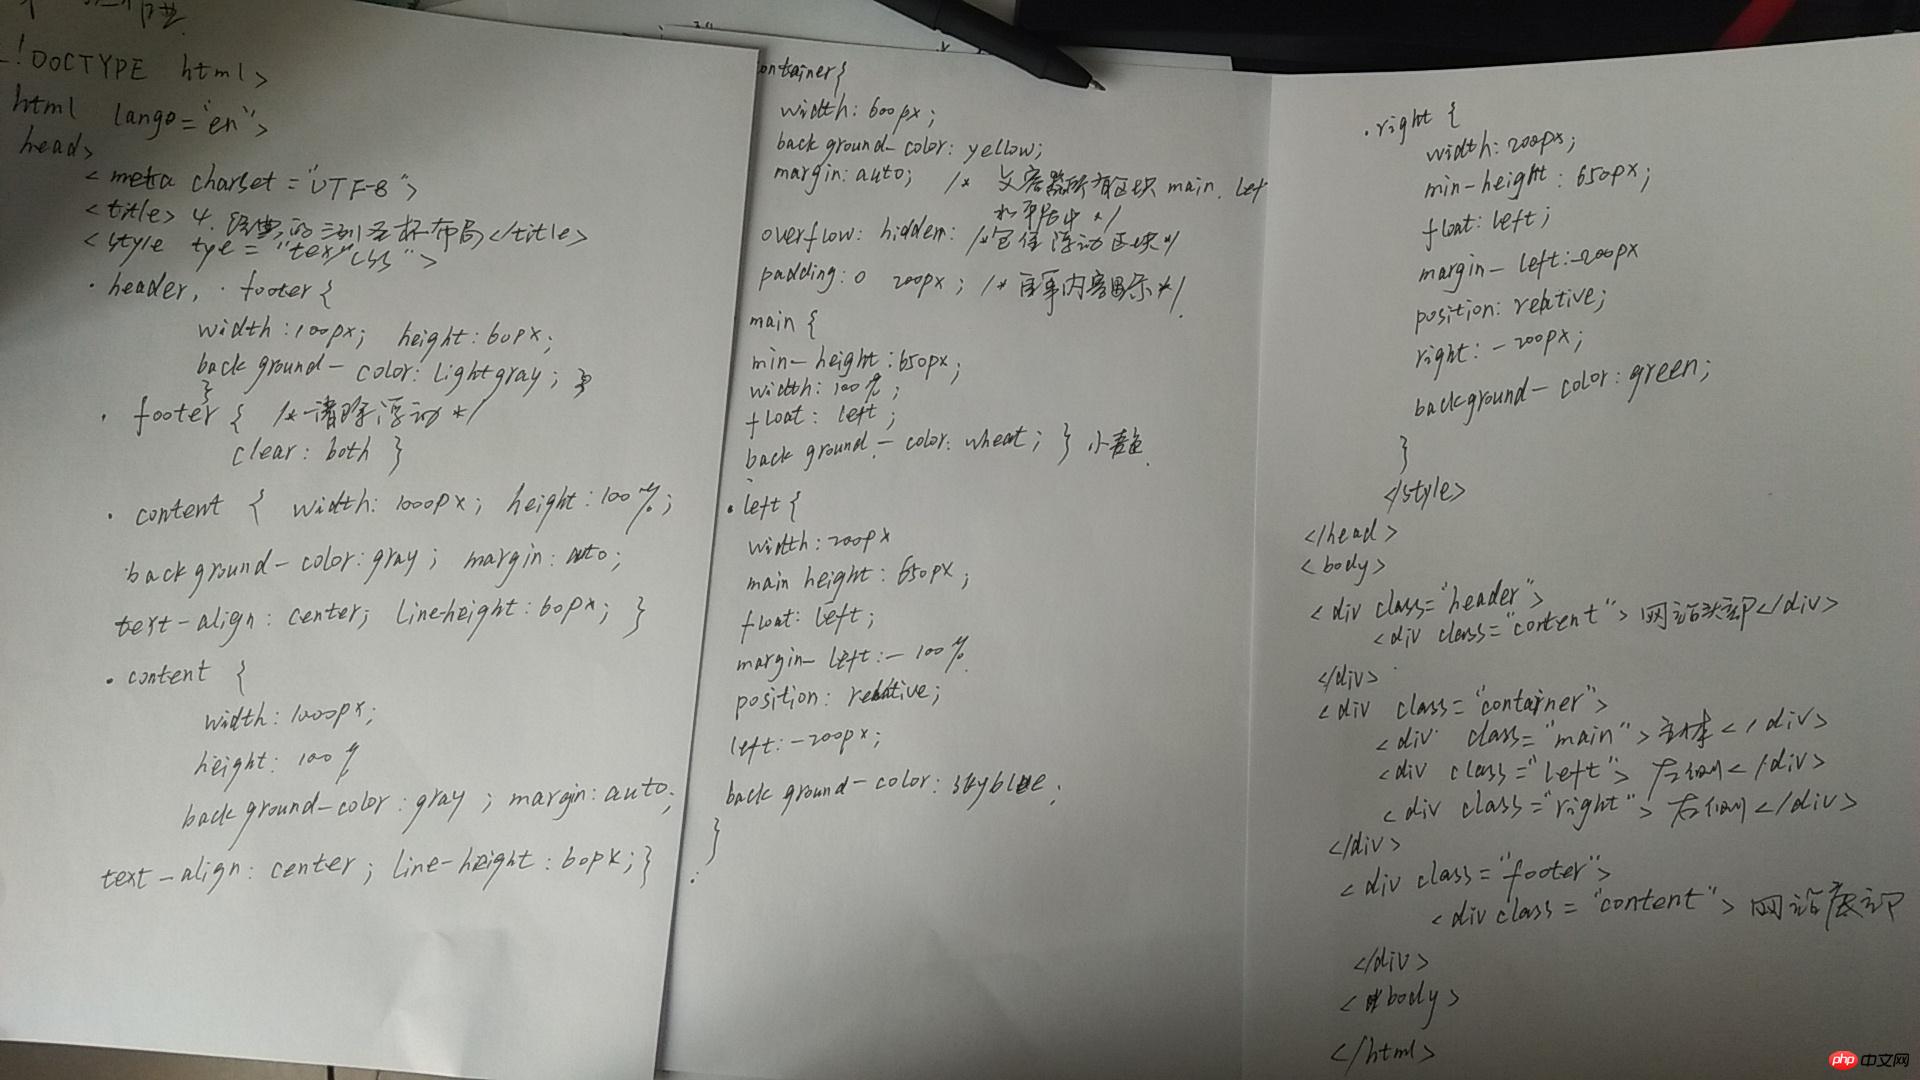 !DOCTYPE html>
html lang="en">
head>
<meta charset="UTF-8">
<title>4.经典的三列圣杯布局</title>
<style tye="text/css">
.header, .footer{
width:100px; height:60px;
background-color:lightgray; }
}
.footer{ /*清除浮动*/
clear:both }
.content { width:1000px; height:100%;
background-color:gray; margin:auto;
text-align:center; line-height:60px; }
.content {
width:1000px;
height:100%
background-color:gray; margin:auto;
text-align:center; line-height:60px; }
ontainer{
width:600px;
background-color:yellow;
margin:auto; /* 父容器所有区块main.left
水平居中 */
overflow:hidden: /*包住浮动区块*/
padding:0 200px; /*内容显示*/
main {
min-height:650px;
width:100%;
float:left;
background-color:wheat; } 小麦色
.left{
width:200px
main height:650px;
float:left;
margin-left:-100%
position:relative;
left:-200px;
background-color:skyblue;
}
.right {
width:200px;
min-height:650px;
float:left;
margin-left:-200px
position:relative;
right:-200px;
background-color:green;
}
</style>
</head>
<body>
<div class="header">
<div class="content">网站头部</div>
</div>
<div class="container">
<div class="main">主体</div>
<div class="left">左侧</div>
<div class="right">右侧</div>
</div>
<div class="footer">
<div class="content">网站底部
</div>
<body>
</html>
php中文网